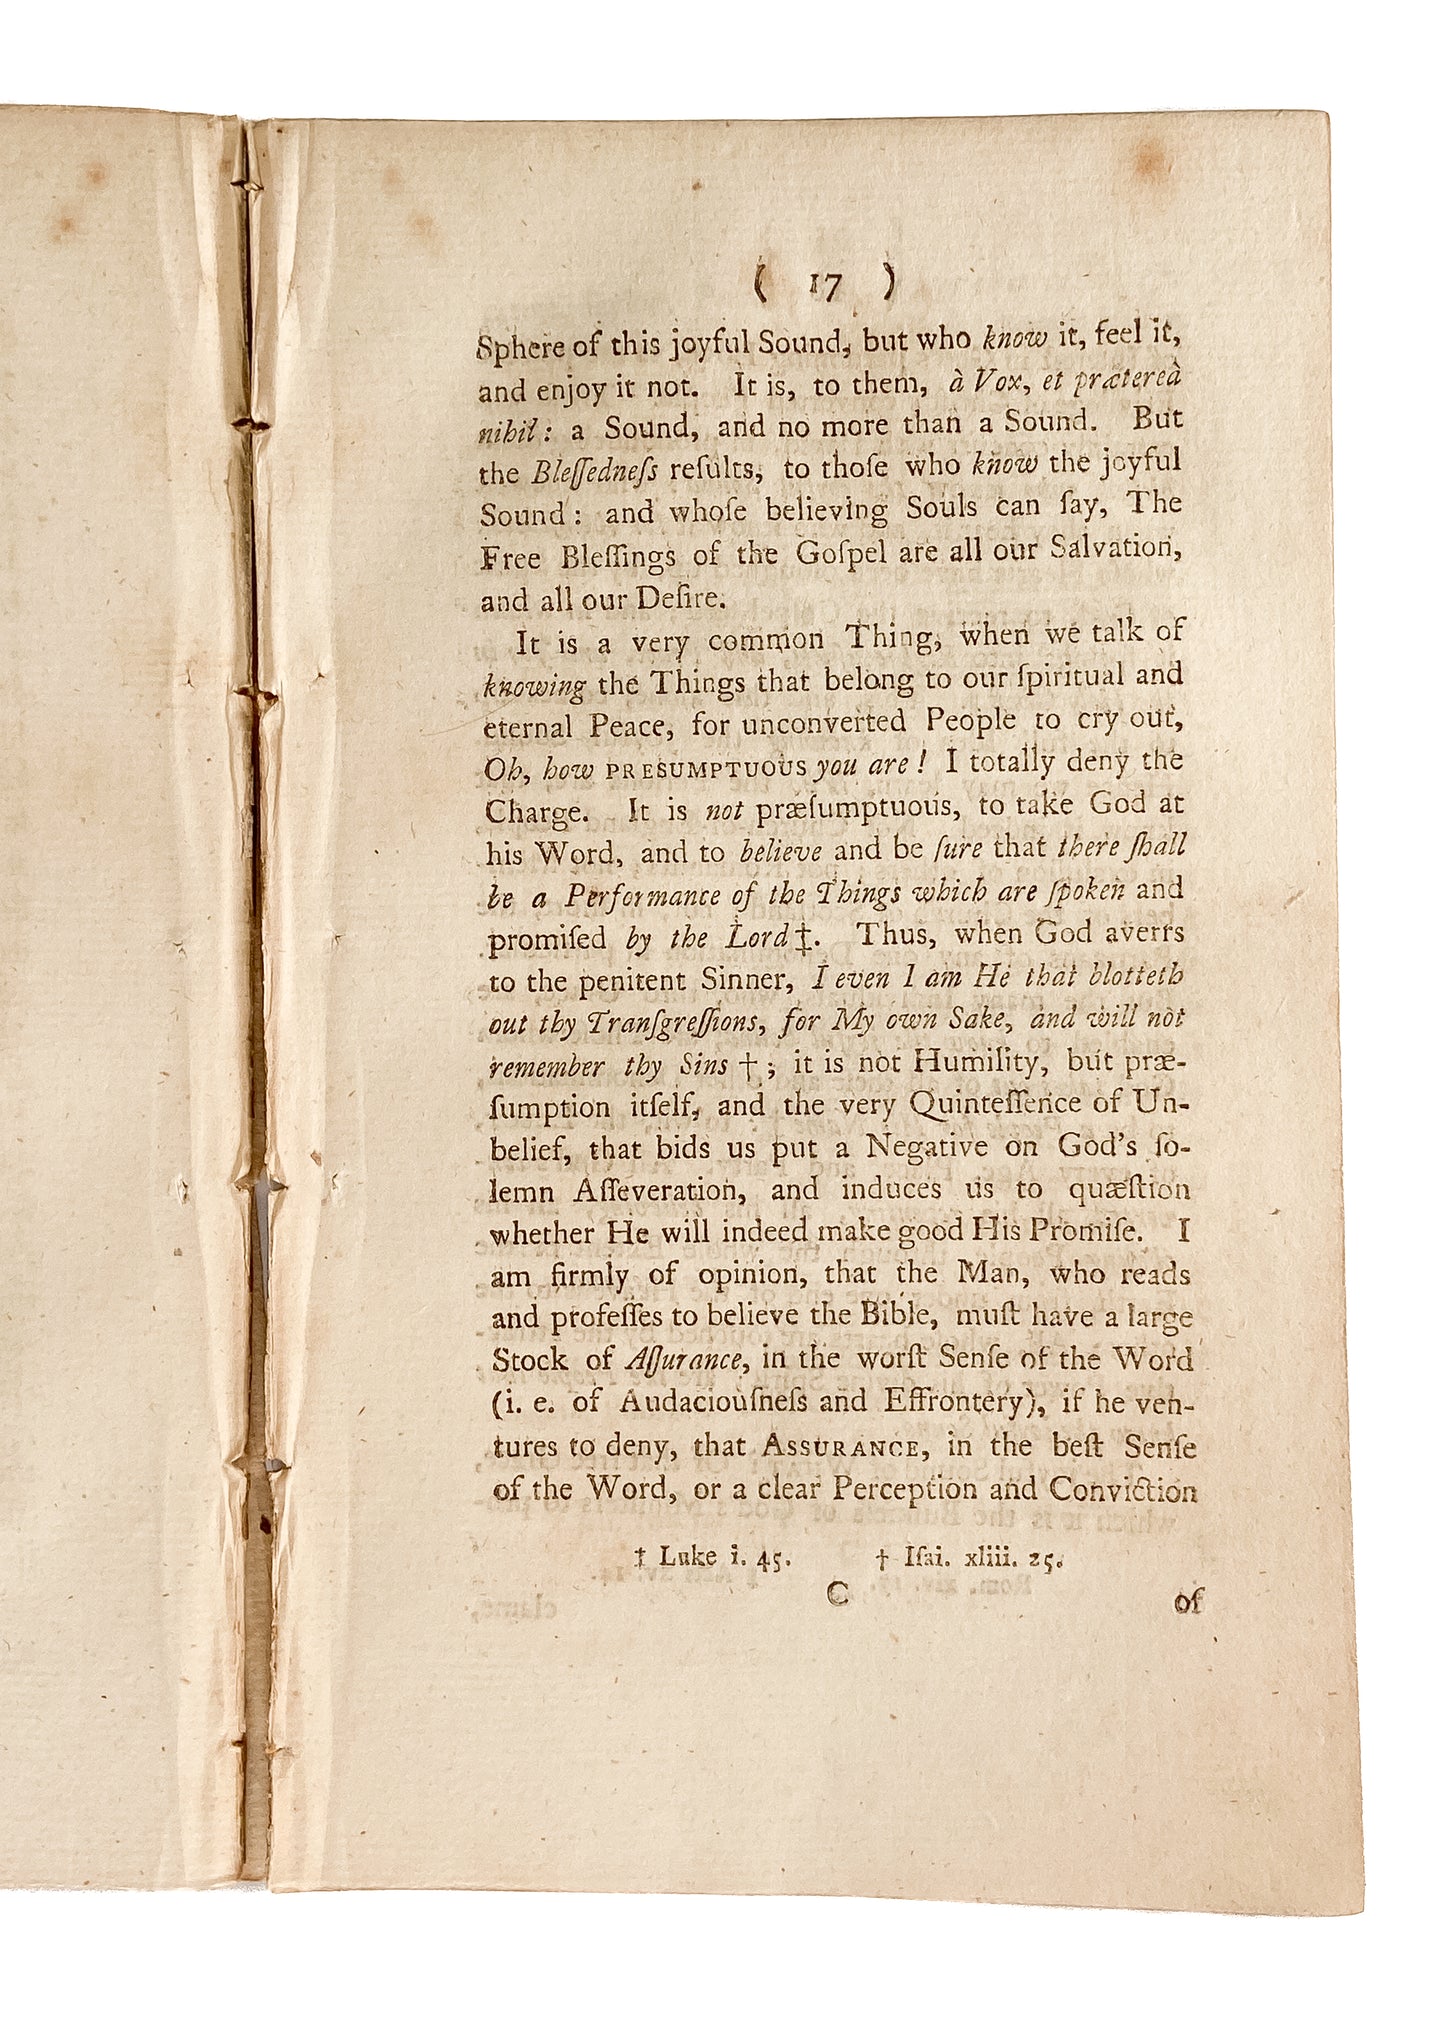 ( 17 )
Sphere of this joyful Sound, but who know it, feel it,
and enjoy it not. It is, to them, à Vox, et prætereà
nihil: a Sound, and no more than a Sound. But
the Bleſſedneſs reſults, to thoſe who know the joyful
Sound: and whoſe believing Souls can ſay, The
Free Bleſſings of the Goſpel are all our Salvation,
and all our Deſire.
It is a very common Thing, when we talk of
knowing the Things that belong to our ſpiritual and
eternal Peace, for unconverted People to cry out,
Oh, how PRESUMPTUOUS you are! I totally deny the
Charge. It is not præſumptuous, to take God at
his Word, and to believe and be ſure that there ſhall
be a Performance of the Things which are ſpoken and
promiſed by the Lord‡. Thus, when God averrs
to the penitent Sinner, I even I am He that blotteth
out thy Tranſgreſſions, for My own Sake, and will not
remember thy Sins †; it is not Humility, but præ-
ſumption itſelf, and the very Quinteſſence of Un-
belief, that bids us put a Negative on God's ſo-
lemn Aſſeveration, and induces us to quæſtion
whether He will indeed make good His Promiſe. I
am firmly of opinion, that the Man, who reads
and profeſſes to believe the Bible, muſt have a large
Stock of Aſſurance, in the worſt Senſe of the Word
(i. e. of Audaciouſneſs and Effrontery), if he ven-
tures to deny, that ASSURANCE, in the beſt Senſe
of the Word, or a clear Perception and Conviction
‡ Luke i. 45. † Iſai. xliii. 25.
C of